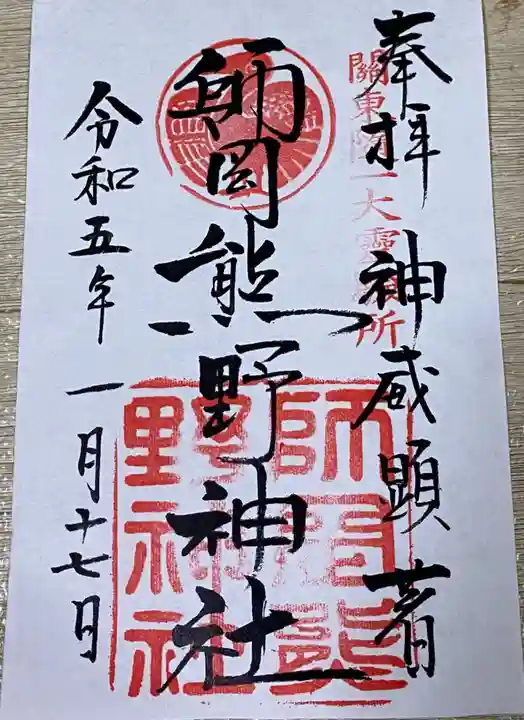 奉拝 神威顕著
關東随一大霊験所
師岡熊野神社
令和五年一月十七日
師岡熊
野神社